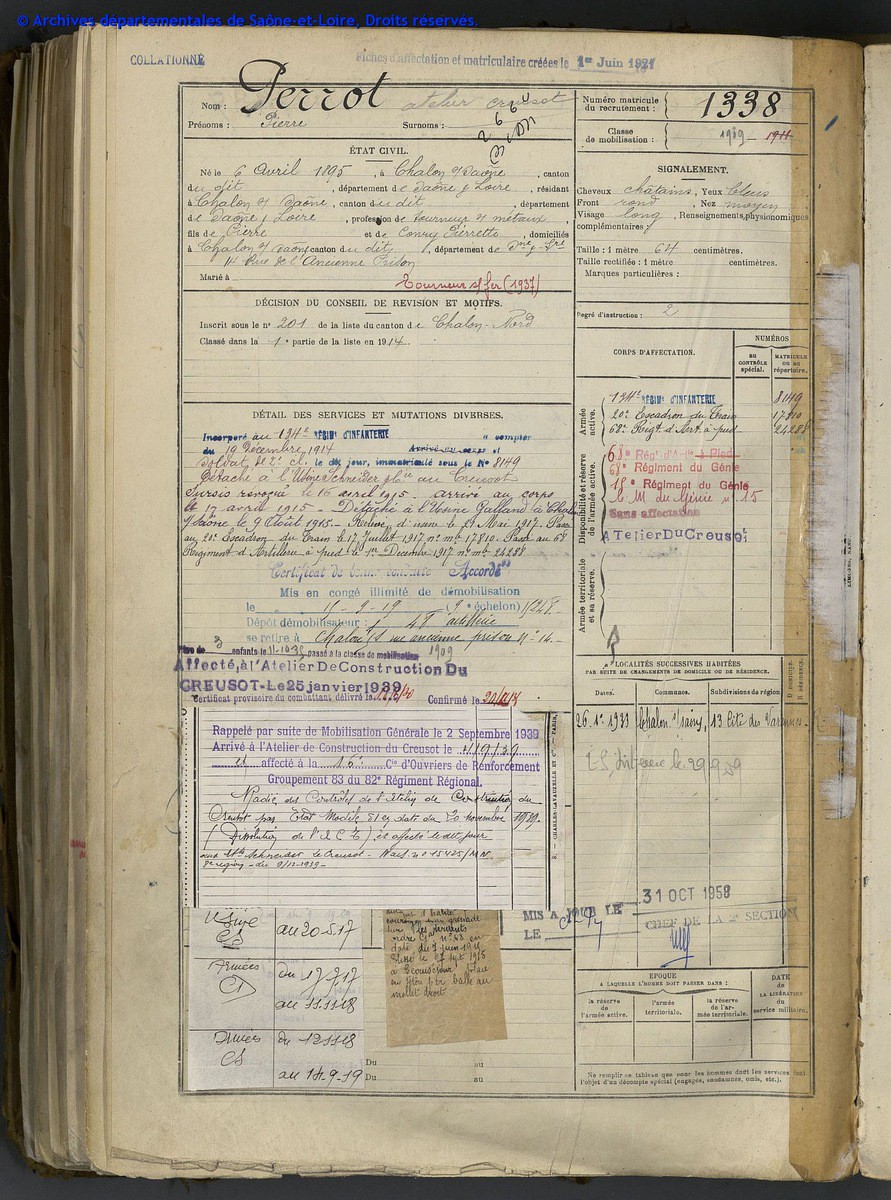 © Archives départementales de Saône-et-Loire, Droits réservés.
COLLATIONNÉ
Fiches d'affectation et matriculaire créées le 1er Juin 1921
Nom : Perrot atelier creusot
Prénoms : Pierre Surnoms :
Numéro matricule du recrutement : 1338
Classe de mobilisation : 1909 1911
ÉTAT CIVIL.
Né le 6 Avril 1895, à Chalon s/ Saône, canton
du dit, département de Saône & Loire, résidant
à Chalon s/ Saône, canton du dit, département
de Saône & Loire, profession de tourneur s/ métaux,
fils de Pierre et de Conry Pierrette, domiciliés
à Chalon s/ Saône canton du dit, département de Sne & Lre
14 Rue de l'Ancienne Prison
Marié à
Tourneur s/fer (1937)
SIGNALEMENT.
Cheveux châtains, Yeux bleus
Front rond, Nez moyen
Visage long, Renseignements physionomiques
complémentaires :
Taille : 1 mètre 64 centimètres.
Taille rectifiée : 1 mètre centimètres.
Marques particulières :
Degré d'instruction : 2
DÉCISION DU CONSEIL DE REVISION ET MOTIFS.
Inscrit sous le n° 201 de la liste du canton de Chalon-Nord
Classé dans la 1e partie de la liste en 1914.
DÉTAIL DES SERVICES ET MUTATIONS DIVERSES.
Incorporé au 134e RÉGIMt D'INFANTERIE à compter
du 19 Décembre 1914 Arrivé au corps et
soldat de 2e cl. le dit jour, immatriculé sous le N° 8149
Détaché à l'Usine Schneider & Cie au Creusot
Sursis révoqué le 16 avril 1915 - arrivé au corps
le 17 avril 1915 - Détaché à l'Usine Galland à Chalon
s/ Saône le 9 Août 1915 - Relevé d'usine le 21 Mai 1917. Passé
au 20e Escadron du Train le 17 Juillet 1917 n° mle 17810. Passé au 68e
Régiment d'Artillerie à pied le 1er Décembre 1917 n° mle 24288
Certificat de bonne conduite "Accordé"
Mis en congé illimité de démobilisation
le 15-9-19 (9e échelon)
Dépôt démobilisateur : 48e artillerie
se retire à Chalon s/S rue ancienne prison N° 14.
Père de 3 enfants le 11-10-35 passé à la classe de mobilisation 1909
Affecté, à l'Atelier De Construction Du
CREUSOT-Le 25 janvier 1939
Certificat provisoire du combattant délivré le
Confirmé le
Rappelé par suite de Mobilisation Générale le 2 Septembre 1939
Arrivé à l'Atelier de Construction du Creusot le 4/9/39
et affecté à la 15e Cie d'Ouvriers de Renforcement
Groupement 83 du 82e Régiment Régional.
Radié des Contrôles de l'Atelier de Construction du
Creusot par Etat Modèle 51 en date du 20 novembre 1939.
(Dissolution de l'A C C) et affecté le dit jour
aux Ets Schneider Le Creusot - Nais. n° 15425/M N.
8e région - du 9/12-1939 -
S. — CHARLES-LAVAUZELLE ET Cie — PARIS,
CORPS D'AFFECTATION.
NUMÉROS
AU CONTRÔLE spécial.
MATRICULE OU AU répertoire.
Armée active.
134e RÉGIMt D'INFANTERIE 8149
20e Escadron du Train 17810
68e Régt d'Art à pied 24288
Disponibilité et réserve de l'armée active.
68e Régt d'Artie à Pied
68e Régiment du Génie
18e Régiment du Génie
C. M du Génie n° 15
Sans affectation
ATelier Du Creusot
Armée territoriale et sa réserve.
LOCALITÉS SUCCESSIVES HABITÉES
PAR SUITE DE CHANGEMENTS DE DOMICILE OU DE RÉSIDENCE.
Dates. Communes. Subdivisions de région. D. DOMICILE. R. RÉSIDENCE.
26-1-1933 Chalon s/ Saône, 13 Cité des Varennes - R -
29.9.59
31 OCT 1958
MIS A JOUR LE
LE
CHEF DE LA 2e SECTION
EPOQUE
À LAQUELLE L'HOMME DOIT PASSER DANS :
la réserve de l'armée active.
l'armée territoriale.
la réserve de l'armée territoriale.
DATE de LA LIBÉRATION du service militaire.
Ne remplir ce tableau que pour les hommes dont les services font
l'objet d'un décompte spécial (engagés, condamnés, omis, etc.).
Usine
CS
au 20-5-17
Armées
CD
du 17-7-17
au 11-11-18
Armées
CS
du 12-11-18
au 14-9-19
Du au
Du au
ordre Gl n° 53 en
date du 7 juin 1918
Blessé le 27 sept 1918
par balle au
mollet droit